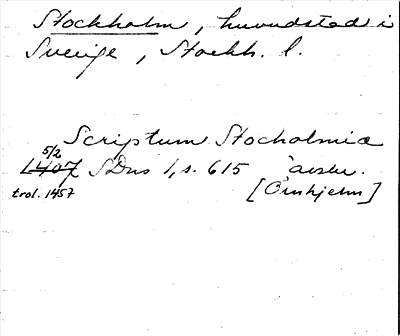 Stockholm, huvudstad i
Sverige, Stockh. l.
Scriptum Stocholmia
5/2
1407 SDns 1, s. 615 avskr.
trol. 1457 [Örnhjelm]